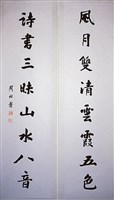 風月雙清雲霞五色
詩書三昧山水八音